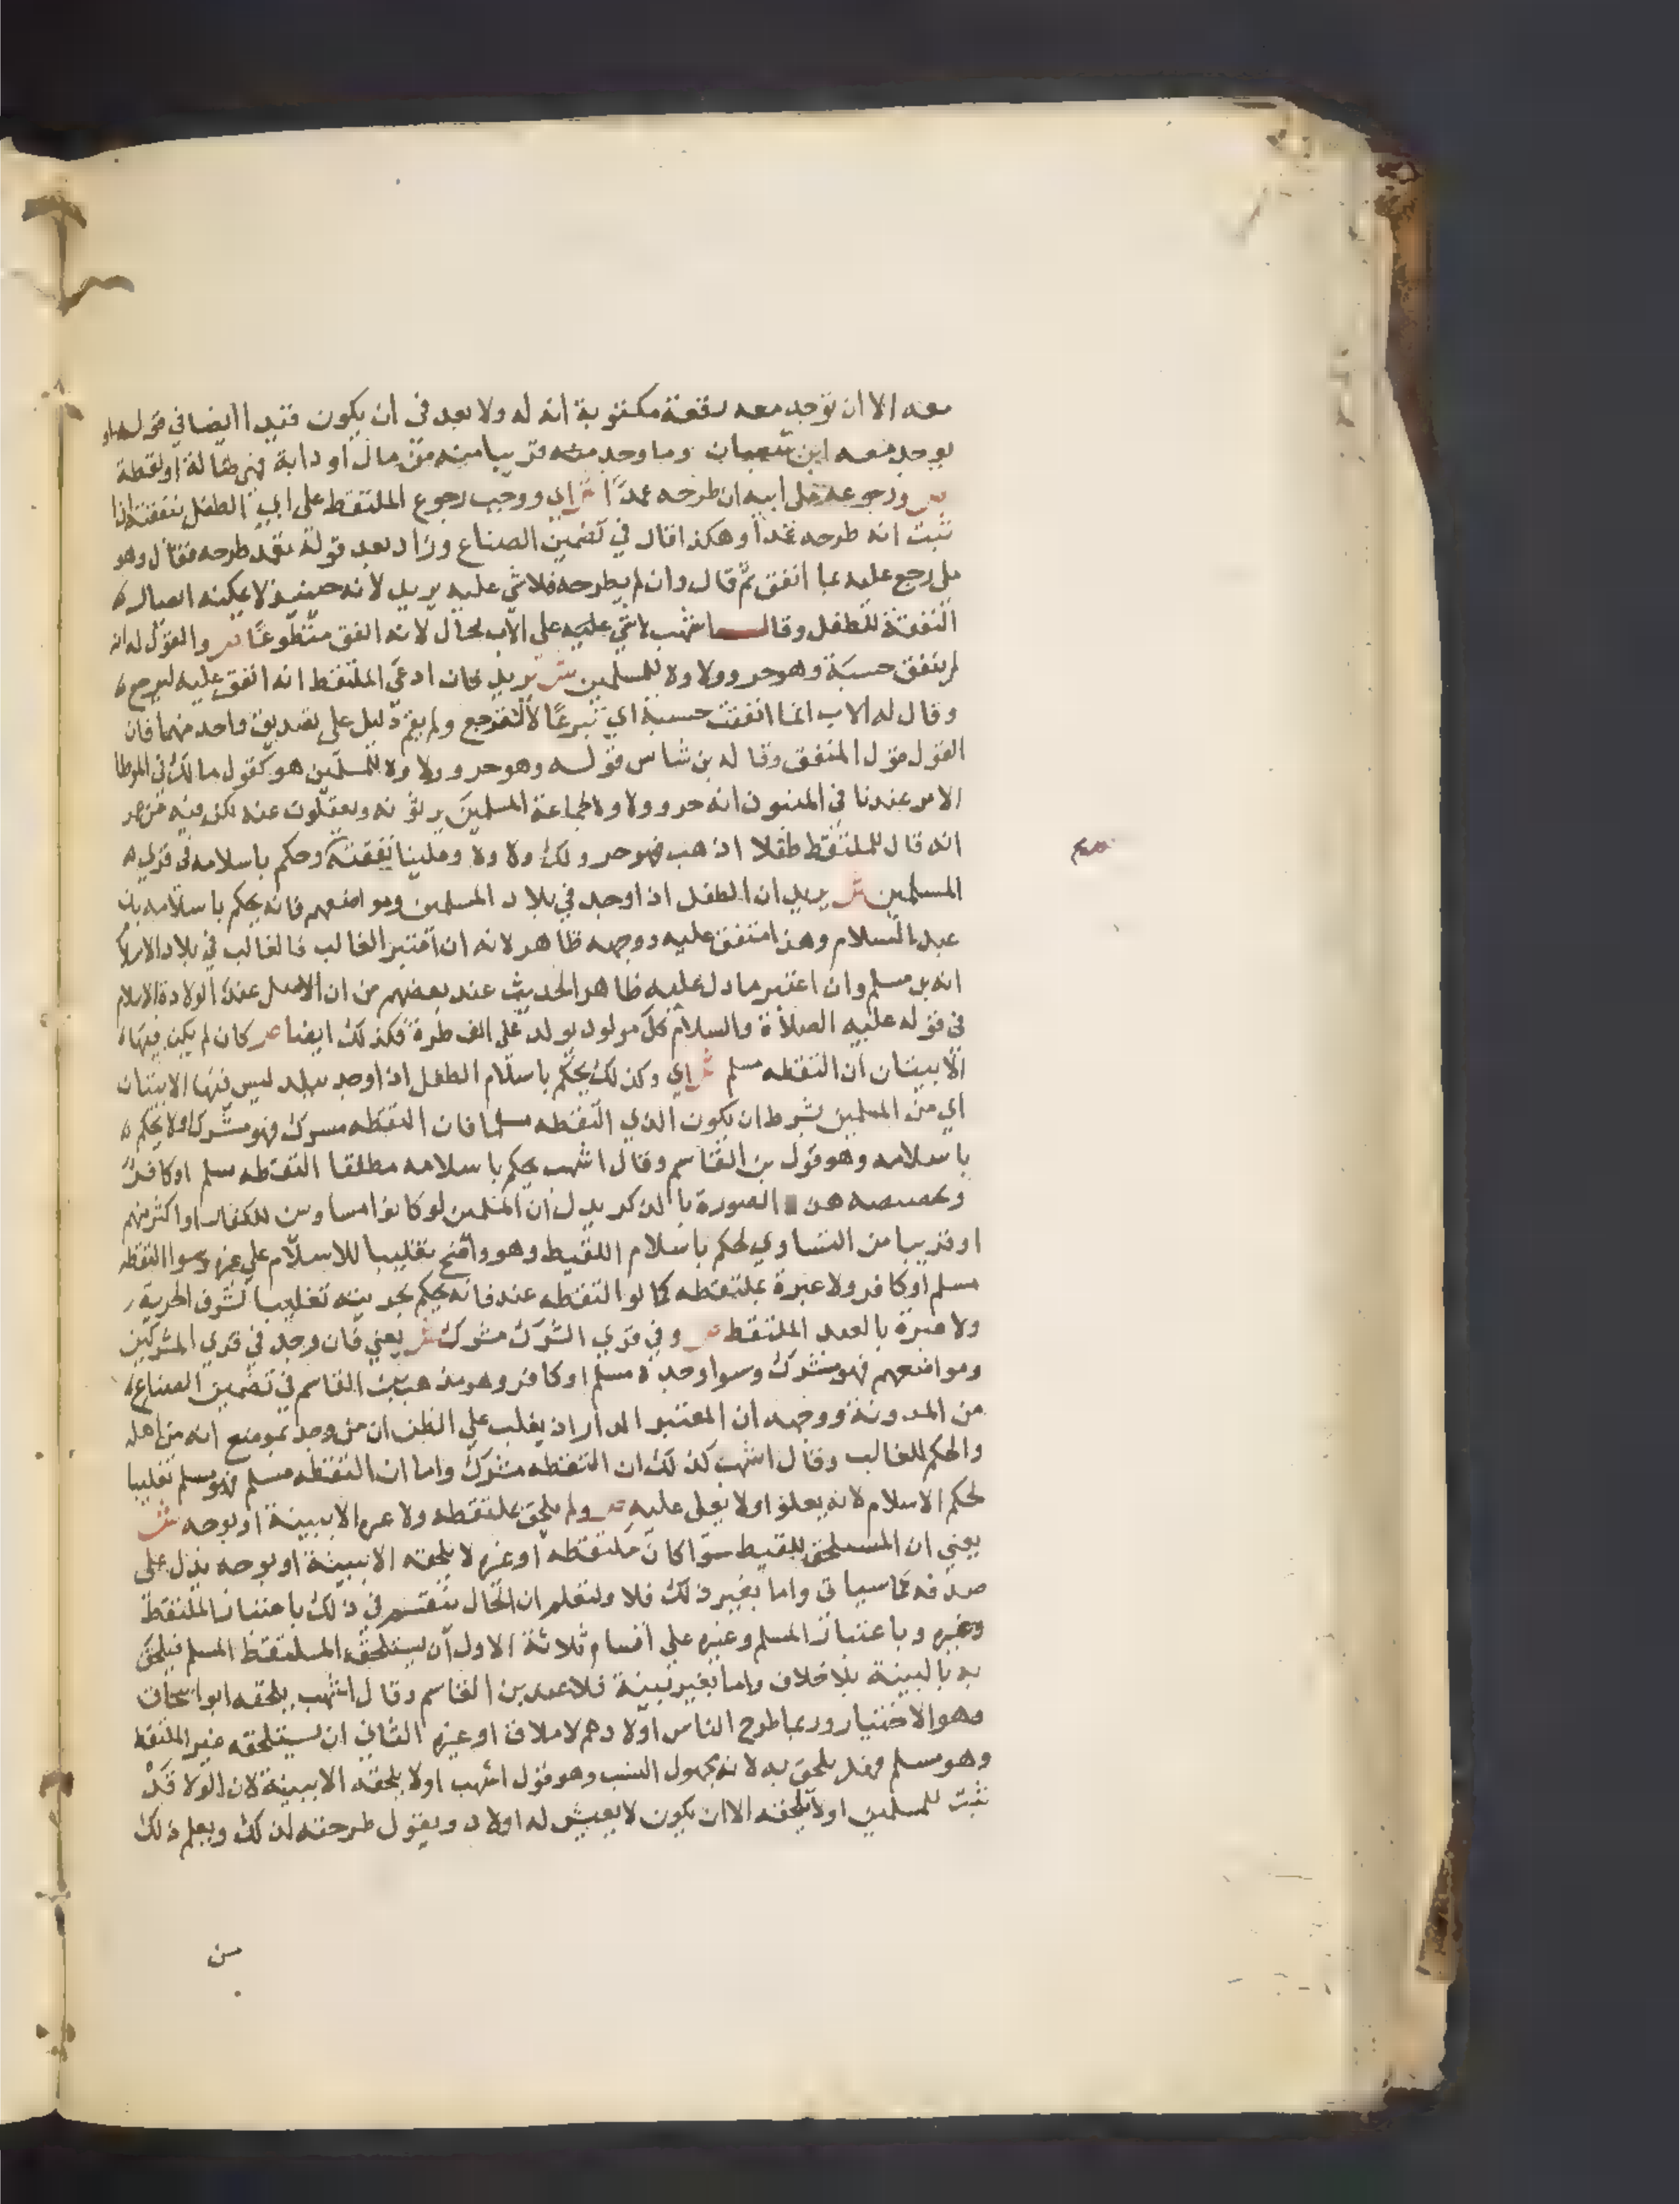 معه الا ان توجد معه رقعة مكتوبة انه له ولا بعد في ان يكون قيدا ايضا في قوله او
يوجد معه ابن شعبان وما وجد منه قريبا منه من مال او دابة فهي ضالة او لقطة
ص ورجوعه على ابيه ان طرحه عمدا ش اي ووجب رجوع الملتقط على ابي الطفل بنفقته اذا
ثبت انه طرحه عمدا وهكذا قال في تضمين الصناع وزاد بعد قوله تعمد طرحه فقال وهو
ملي رجع عليه بما انفق ثم قال وان لم يطرحه فلا شي عليه يريد لانه حينيذ لا يمكنه ايصال
النفقة للطفل وقال اشهب لا شي عليه على الاب بحال لانه انفق متطوعا ص والقول له انه
لم ينفق حسبة وهو حر وولاوه للمسلمين ش يريد فان ادعى الملتقط انه انفق عليه ليرجع
وقال له الاب انما انفقت حسبة اي تبرعا لا لترجع ولم يقم دليل على تصديق واحد منهما فان
القول قول المنفق وقاله بن شاس قوله وهو حر وولاوه للمسلمين هو كقول مالك في الموطا
الامر عندنا في المنبوذ انه حر وولاوه لجماعة المسلمين يرثونه ويعقلون عنه لكن فيه عن عمر
انه قال للملتقط طفلا اذهب فهو حر ولك ولاوه وعلينا نفقته وحكم باسلامه في قري
المسلمين ش يريد ان الطفل اذا وجد في بلاد المسلمين ومواضعهم فانه يحكم باسلامه بن
عبد السلام وهذا متفق عليه ووجهه ظاهر لانه ان اعتبر الغالب فالغالب في بلاد الاسلام
انه بن مسلم وان اعتبر ما دل عليه ظاهر الحديث عند بعضهم من ان الاصل عند الولادة الاسلام
في قوله عليه الصلاة والسلام كل مولود يولد على الفطرة فكذلك ايضا ص كان لم يكن فيها
الا بيتان ان التقطه مسلم ش اي وكذلك يحكم باسلام الطفل اذا وجد ببلد ليس فيها الا بيتان
اي من المسلمين بشرط ان يكون الذي التقطه مسلما فان التقطه مسرك فهو مشرك ولا يحكم
باسلامه وهو قول بن القاسم وقال اشهب يحكم باسلامه مطلقا التقطه مسلم او كافر
وتخصيصه هذه الصورة بالذكر يدل ان المسلمين لو كانوا مساوين للكفار او اكثر منهم
او قريبا من التساوي لحكم باسلام اللقيط وهو واضح تغليبا للاسلام على غيره وسوا التقطه
مسلم او كافر ولا عبرة بملتقطه كما لو التقطه عبد فانه يحكم بحريته تغليبا لشرف الحرية
ولا عبرة بالعبد الملتقط ص وفي قري الشرك مشرك ش يعني فان وجد في قري المشركين
ومواضعهم فهو مشرك وسوا وجده مسلم او كافر وهو مذهب بن القاسم في تضمين الصناع
من المدونة ووجهه ان المعتبر الدار اذ يغلب على الظن ان من وجد بموضع انه من اهله
والحكم للغالب وقال اشهب كذلك ان التقطه مشرك واما ان التقطه مسلم فهو مسلم تغليبا
لحكم الاسلام لانه يعلو ولا يعلى عليه ص ولم يلحق بملتقطه ولا غيره الا ببينة او بوجه ش
يعني ان المستلحق للقيط سوا كان ملتقطه او غيره لا يلحقه الا ببينة او بوجه يدل على
صدقه كما سياتي واما بغير ذلك فلا ولتعلم ان الحال تنقسم في ذلك باعتبار الملتقط
وغيره وباعتبار المسلم وغيره على اقسام ثلاثة الاول ان يستلحقه الملتقط المسلم فيلحق
به بالبينة بلا خلاف واما بغير بينة فلا عند بن القاسم وقال اشهب يلحقه ابو اسحاق
وهو الاختيار وربما طرح الناس اولادهم لاملاق او غيره الثاني ان يستلحقه غير الملتقط
وهو مسلم فهل يلحق به لانه مجهول النسب وهو قول اشهب او لا يلحقه الا ببينة لان الولا قد
ثبت للمسلمين او لا يلحقه الا ان يكون لا يعيش له اولاد ويقول طرحته لذلك ويعلم ذلك